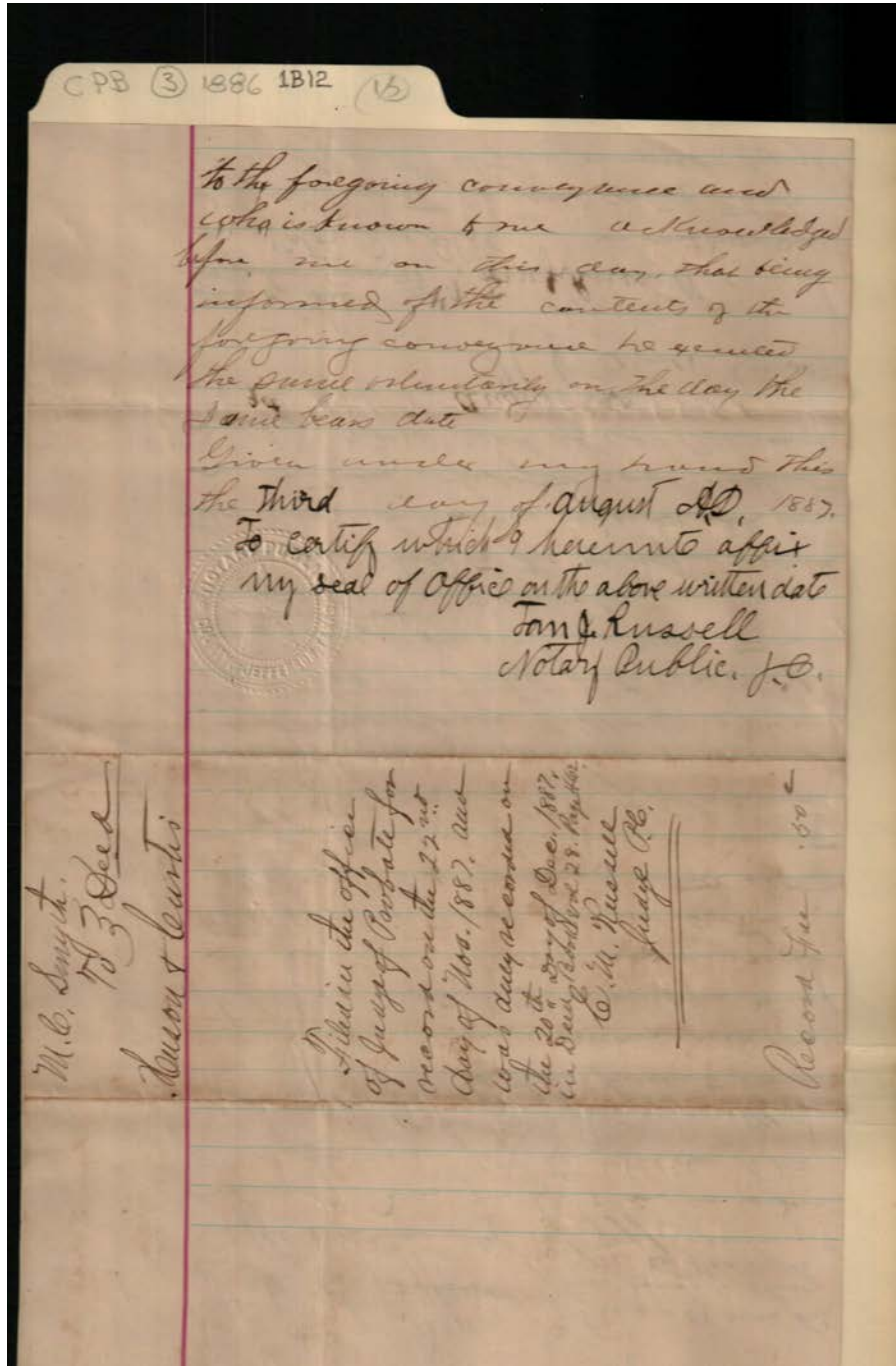 CPB ③ 1886 1B12 (15)
to the foregoing conveyance and
who is known to me acknowledged
before me on this day, that being
informed of the contents of the
foregoing conveyance he executed
the same voluntarily on the day the
same bears date
Given under my hand this
the third day of august A.D. 1887.
To certify which I hereunto affix
my seal of Office on the above written date
Tom J. Russell
Notary Public. J.C.
M.C. Smyth.
To } Deed
Henson & Curtis
Filed in the office
of Judge of Probate for
record on the 22nd
day of Nov. 1887. and
was duly recorded on
the 20th Day of Dec. 1887.
in Deed Vol 28.
C. M. Russell
Judge P.C.
Record Fee .50c